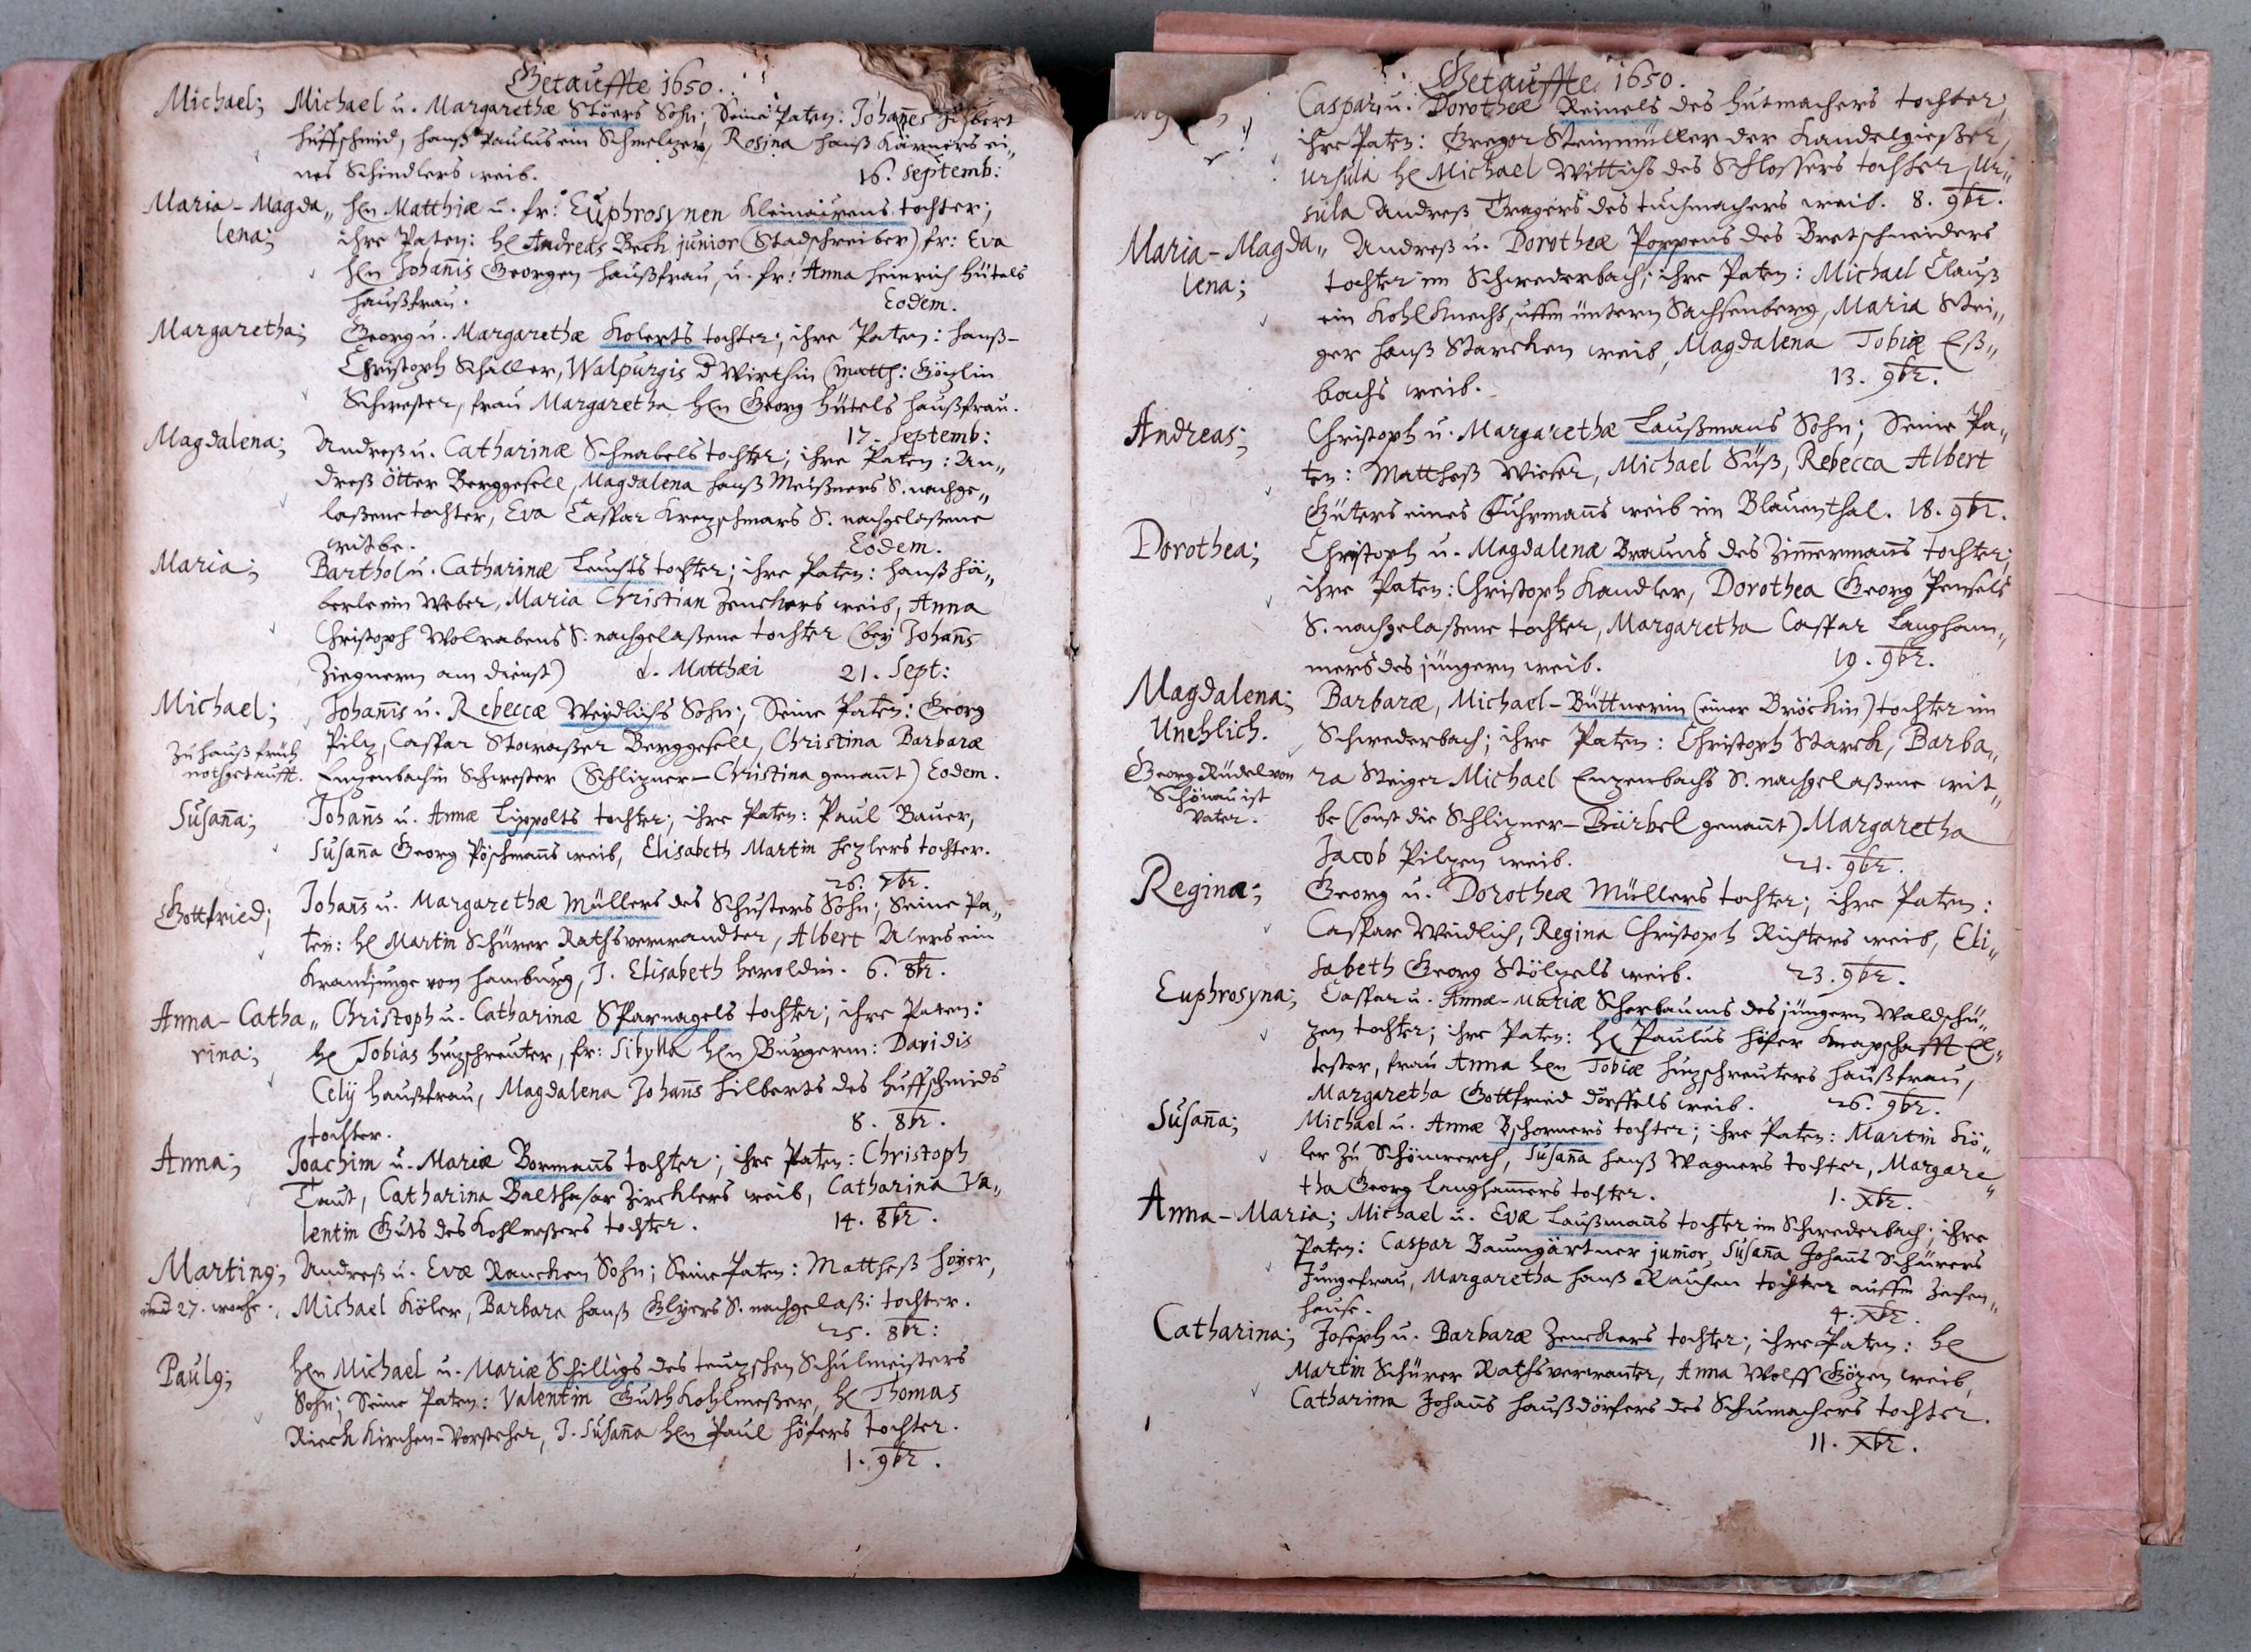 Getauffte 1650.
Michael; Michael u. Margarethæ Stöers Sohn; Seine Paten: Johannes Hilbert
Huffschmid, Hanß Paulus ein Schmelzer, Rosina Hanß Kärners ei„
nes Schindlers weib. 16. Septemb:
Maria-Magda„ H̄en Matthiæ u. fr: Euphrosynen Kleinairens tochter;
lena; ihre Paten: H̄e Andreas Beck junior (Stadschreiber) fr: Eva
H̄en Johannis Georgen Haußfrau, u. fr: Anna Heinrich Hütels
Haußfrau. Eodem.
Margaretha; Georg u. Margarethæ Kolerts tochter; ihre Paten: Hanß-
Christoph Schaller, Walpurgis d Wirthin (Matth: Gözlin
Schwester, frau Margaretha H̄en Georg Hütels Haußfrau.
17. Septemb:
Magdalena; Andreß u. Catharinæ Schnabels tochter; ihre Paten: An„
dreß Otter Berggesell, Magdalena Hanß Meißners S. nachge„
laßene tochter, Eva Caspar Krezschmars S. nachgelaßene
witbe. Eodem.
Maria; Barthol u. Catharinæ Leuchts tochter; ihre Paten: Hanß Hä„
berle ein Weber, Maria Christian Zenckers weib, Anna
Christoph Wolrabens S. nachgelaßene tochter (bey Johanns
Ziegnern am dienst) d. Matthæi 21. Sept:
Michael; Johannis u. Rebeccæ Weydlichs Sohn; Seine Paten: Georg
zu hauß früh Pilz, Caspar Berggesell, Christina Barbaræ
nothgetaufft. Enzenbachin Schwester (Schlizner-Christina genannt) Eodem.
Susanna; Johanns u. Annæ Lippolts tochter; ihre Paten: Paul Bauer,
Susanna Georg Pöschmanns weib, Elisabeth Martin Hezlers tochter.
26. 7br.
Gottfried; Johanns u. Margarethæ Müllers des Schusters Sohn; Seine Pa„
ten: H̄e Martin Schürer Rathsverwandter, Albert Alers ein
Kramjunge von Hamburg, J. Elisabeth Heroldin. 6. 8br.
Anna-Catha„ Christoph u. Catharinæ Sparnagels tochter; ihre Paten:
rina; H̄e Tobias Huzschreuter, fr: Sibylla H̄en Burgerm: Davidis
Celij Haußfrau, Magdalena Johanns Hilberts des Huffschmids
tochter. 8. 8br.
Anna; Joachim u. Mariæ Bormanns tochter; ihre Paten: Christoph
Taut, Catharina Balthasar Zircklers weib, Catharina Va„
lentin Guts des Kohlmeßers tochter. 14. 8br.
Marting; Andreß u. Evæ Rancken Sohn; Seine Paten: Mattheß Hoyer,
27. woche: Michael Köler, Barbara Hanß Glyers S. nachgelaß: tochter.
25. 8br:
Paulg; H̄en Michael u. Mariæ Schilligs des teuzschen Schulmeisters
Sohn; Seine Paten: Valentin Guth Kohlmeßer, H̄e Thomas
Rieck Kirchen-Vorsteher, J. Susanna H̄en Paul Höfers tochter.
1. 9br.
Getauffte 1650.
Caspar u. Dorotheæ Reinels des Hutmachers tochter;
ihre Paten: Gregor Steinmüller der Kandelgießer,
Ursula H̄e Michael Wittichs des Schlossers tochter, Ur„
sula Andreß Tragers des tuchmachers weib. 8. 9br.
Maria-Magda„ Andreß u. Dorotheæ Poppens des Bretschneiders
lena; tochter im Schwederbach; ihre Paten: Michael Clauß
ein Kohl Knecht, uffm untern Sachsenberg, Maria Stei„
ger Hanß Starcken weib, Magdalena Tobiæ Eß„
bachs weib. 13. 9br.
Andreas; Christoph u. Margarethæ Laußmans Sohn; Seine Pa„
ten: Mattheß Wieser, Michael Süß, Rebecca Albert
Güters eines Fuhrmanns weib im Blauenthal. 18. 9br.
Dorothea; Christoph u. Magdalenæ Brauns des Zimmermanns tochter;
ihre Paten: Christoph Kandler, Dorothea Georg Pensels
S. nachgelaßene tochter, Margaretha Caspar Langham„
mers des jüngern weib. 19. 9br.
Magdalena; Barbaræ, Michael-Büttnerin (einer Bröckin) tochter im
Unehlich. Schwederbach; ihre Paten: Christoph Starck, Barba„
Georg Rüdel von ra Steiger Michael Enzenbachs S. nachgelaßene wit„
Schönau ist
Vater. be (sonst die Schlizner-Bärbel genannt) Margaretha
Jacob Pilzen weib. 21. 9br.
Regina; Georg u. Dorotheæ Müllers tochter; ihre Paten:
Caspar Weidlich, Regina Christoph Richters weib, Eli„
sabeth Georg Stölzels weib. 23. 9br.
Euphrosyna; Caspar u. Annæ-Mariæ Scherbaums des jüngern Waldschü„
zen tochter; ihre Paten: H̄e Paulus Höfer Knapschafft El„
tester, frau Anna H̄en Tobiæ Huzschreuters Haußfrau,
Margaretha Gottfried Dörffels weib. 26. 9br.
Susanna; Michael u. Annæ Bschorners tochter; ihre Paten: Martin Kö„
ler zu Schönwerth, Susanna Hanß Wagners tochter, Margare„
tha Georg Langhammers tochter. 1. Xbr.
Anna-Maria; Michael u. Evæ Laußmanns tochter im Schwederbach; ihre
Paten: Caspar Baumgärtner junior, Susanna Johanns Schürers
Jungefrau, Margaretha Hanß Rauhen tochter auffm Zechen„
hause. 4. Xbr.
Catharina; Joseph u. Barbaræ Zenckers tochter; ihre Paten: H̄e
Martin Schürer Rathsverwanter, Anna Wolff Gözen weib,
Catharina Johanns Haußdörfers des Schumachers tochter.
11. Xbr.